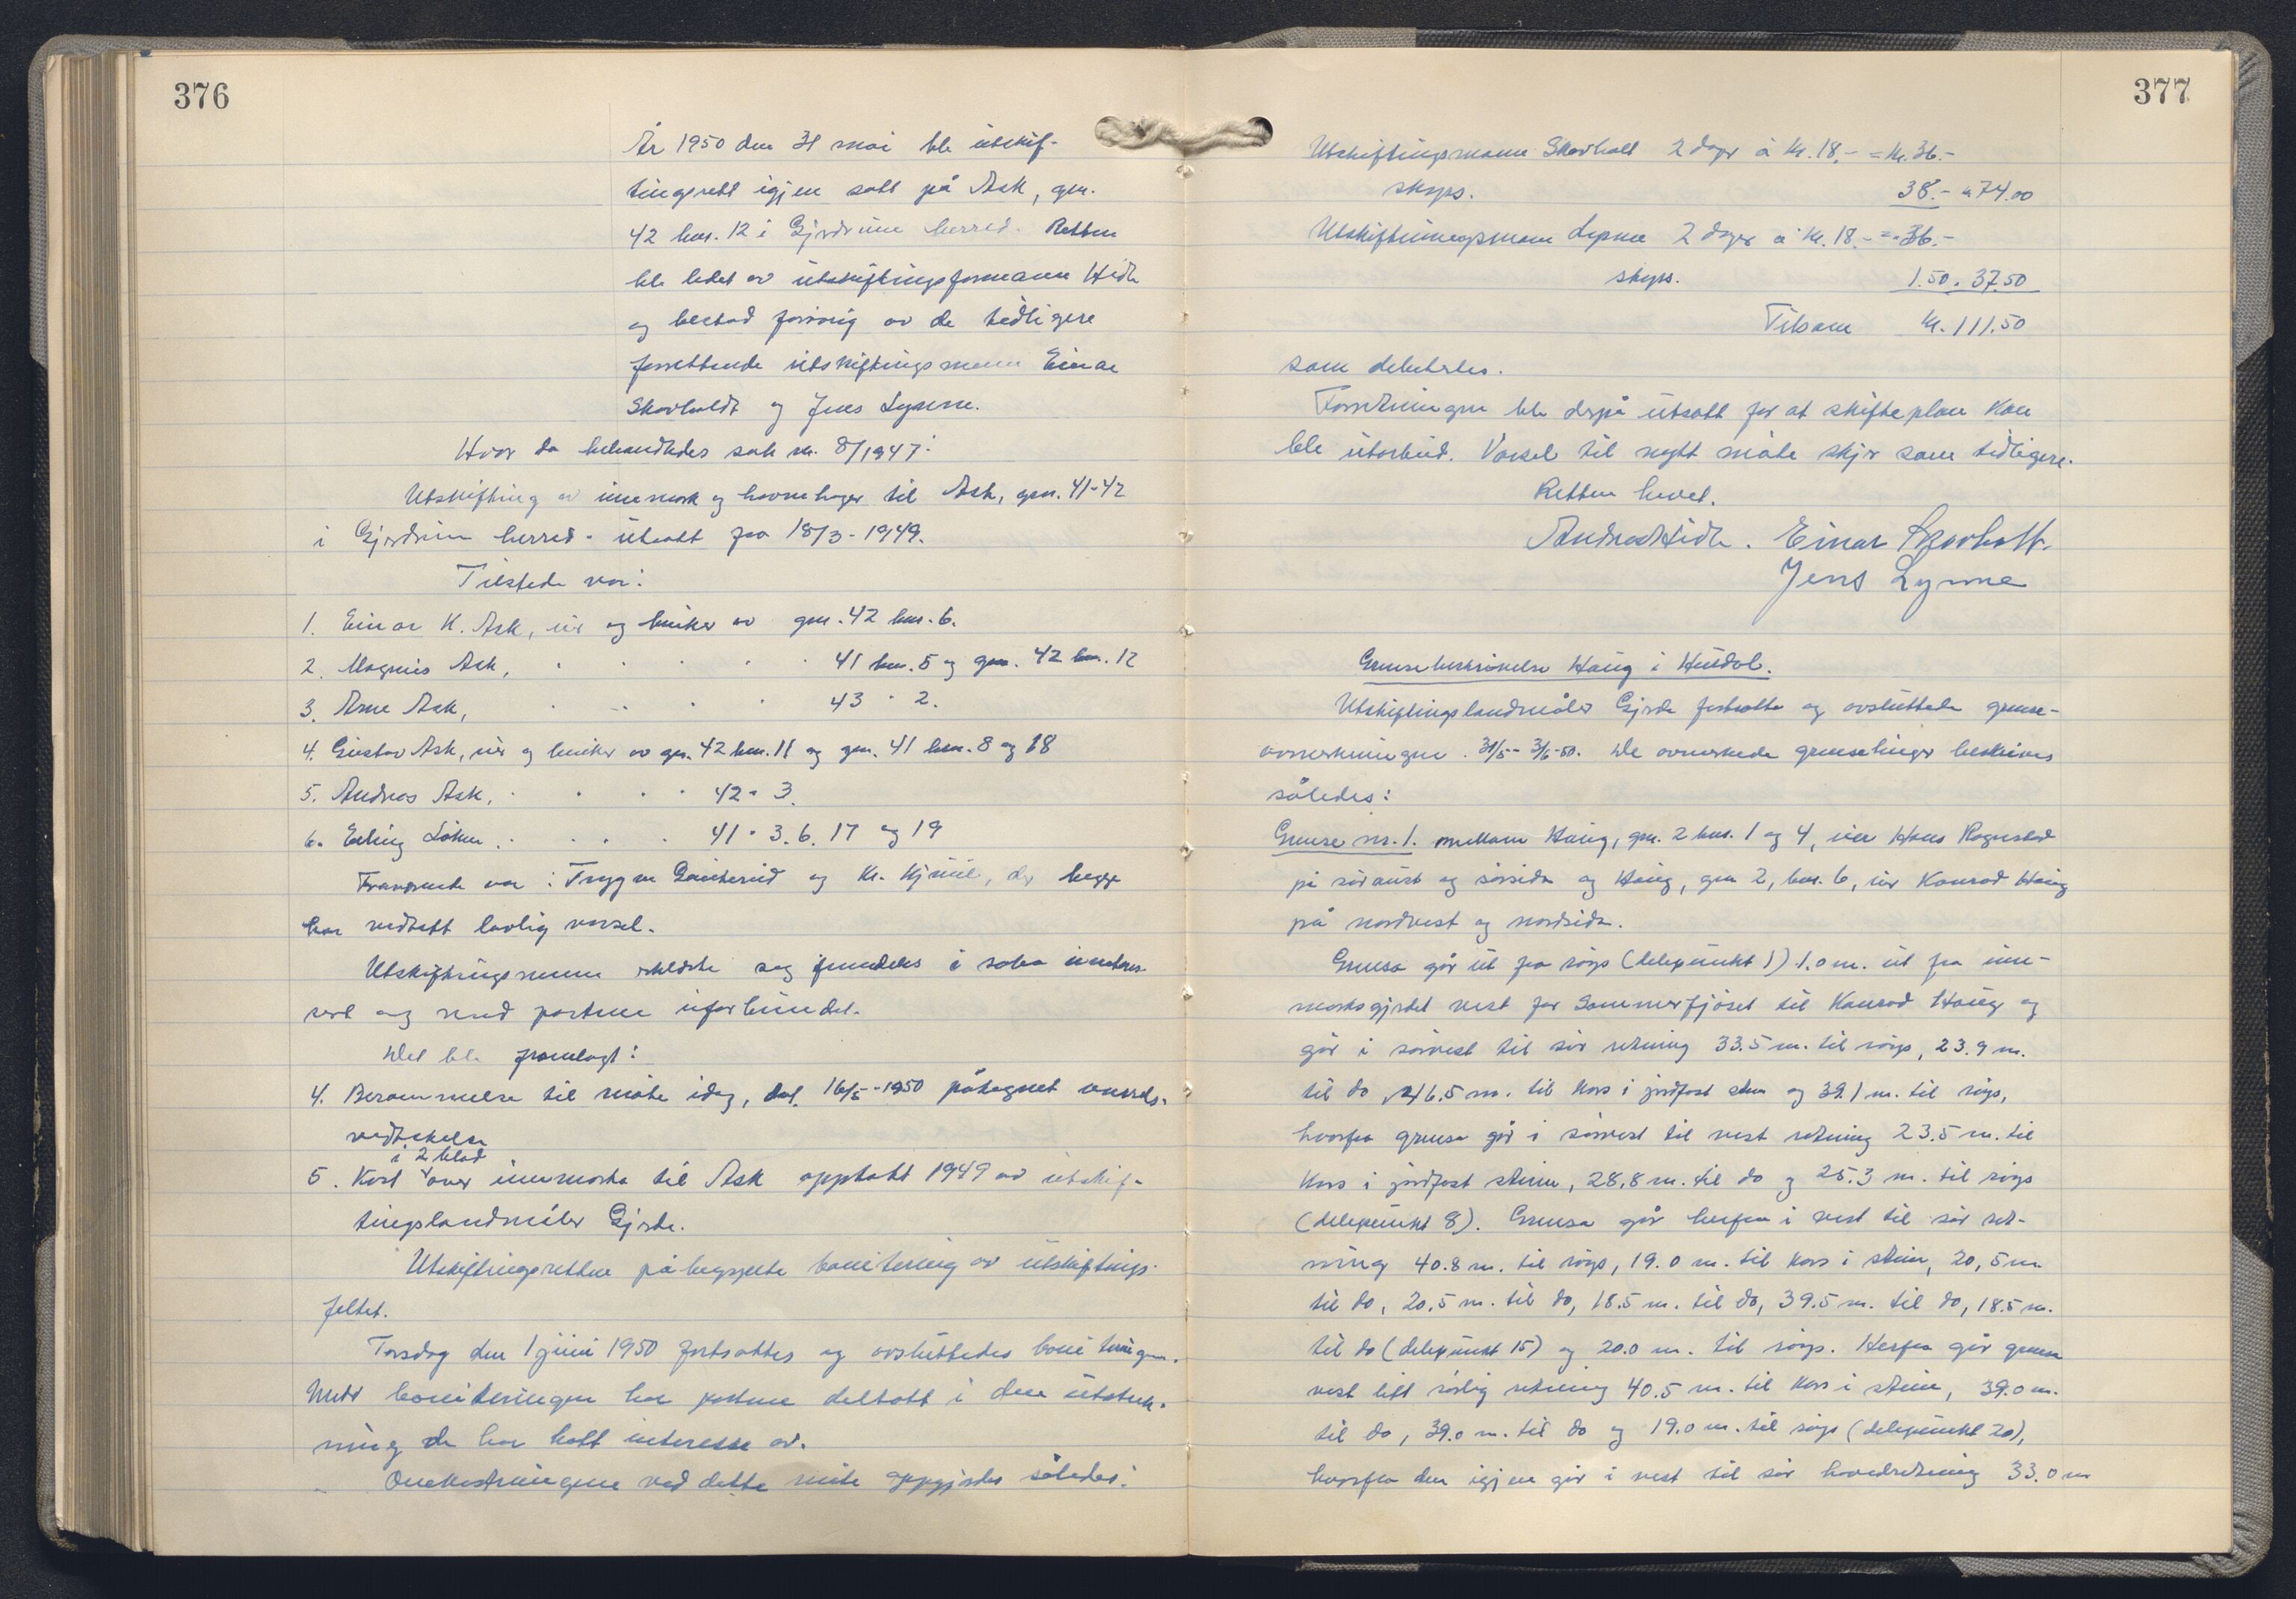 376
År 1950 den 31 mai ble utskif-
tingsrett igjen satt på Ask, gnr.
42 bnr. 12 i Gjerdrum herred. Retten
ble ledet av utskiftingsformann Hidle
og bestod forøvrig av de tidligere
forrettende utskiftingsmenn Einar
Skovholdt og Jens Lynne.
Hvor da behandledes sak nr. 8/1947:
Utskifting av innmark og havnehager til Ask, gnr. 41-42
i Gjerdrum herred - utsatt fra 18/3-1949.
Tilstede var:
1. Einar K. Ask, eier og bruker av gnr. 42 bnr. 6.
2. Magnus Ask, " " " " " 41 bnr. 5 og gnr. 42 bnr. 12
3. Arne Ask, " " " " 43 " 2.
4. Gustav Ask, eier og bruker av gnr. 42 bnr. 11 og gnr. 41 bnr. 8 og 18
5. Andreas Ask, " " " " 42 " 3.
6. Erling " " " " 41 " 3. 6. 17 og 19
Fraværende var: Trygve og Kr. der begge
har vedtatt lovlig varsel.
Utskiftingsmenn erklærte seg fremdeles i saken uinteres-
sert og med partene uforbundet.
Det ble framlagt:
4. Berammelse til møte idag, dat. 16/5-1950 påtegnet varsels-
vedtakelse
i 2 blad
5. Kart over innmarka til Ask opptatt 1949 av utskif-
tingslandmåler Gjerde.
Utskiftingsretten påbegynte bonitering av utskiftings-
feltet.
Torsdag den 1 juni 1950 fortsattes og avsluttedes boniteringen.
Under boniteringen har partene deltatt i den utstrek-
ning de har hatt interesse av.
Omkostningene ved dette møte oppgjordes således:
377
Utskiftingsmann Skovholt 2 dager à kr. 18,- = kr. 36.-
skyss. 38.- " 74.00
Utskiftningsmann Lynne 2 dager à kr. 18.- = " 36.-
skyss. 1.50 " 37.50
Tilsam kr. 111.50
som debiteres.
Forretningen ble derpå utsatt for at skifteplan kan
ble utarbeid. Varsel til nytt møte skjer som tidligere.
Retten hevet.
Andreas Hidle. Einar Skovholt.
Jens Lynne
Grensebeskrivelse Haug i Hurdal.
Utskiftingslandmåler Gjerde fortsatte og avsluttede grense-
avmerkningen 31/5 - 3/6-50. De avmerkede grenselinjer beskrives
således:
Grense nr. 1. mellom Haug, gnr. 2 bnr. 1 og 4, eier Hans Ragnstad
på søraust og sørsida og Haug, gnr 2, bnr. 6, eier Konrad Haug
på nordvest og nordsida.
Grensa går ut fra røys (delepunkt 1) 1.0 m. ut fra inn-
marksgjerdet vest for Sommerfjøset til Konrad Haug og
går i sørvest til sør retning 33.5 m. til røys, 23.9 m.
til do, 46.5 m. til kors i jordfast sten og 39.1 m. til røys,
hvorfra grensa går i sørvest til vest retning 23.5 m. til
kors i jordfast stein, 28,8 m. til do og 25.3 m. til røys
(delepunkt 8). Grensa går herfra i vest til sør ret-
ning 40.8 m. til røys, 19.0 m. til kors i stein, 20,5 m
til do, 20.5 m. til do, 18.5 m. til do, 39.5 m. til do, 18.5 m.
til do (delepunkt 15) og 20.0 m. til røys. Herfra går grensa
vest litt sørlig retning 40.5 m. til kors i stein, 39.0 m.
til do, 39.0 m. til do og 19.0 m. til røys (delepunkt 20),
hvorfra den igjen går i vest til sør hovedretning 33.0 m